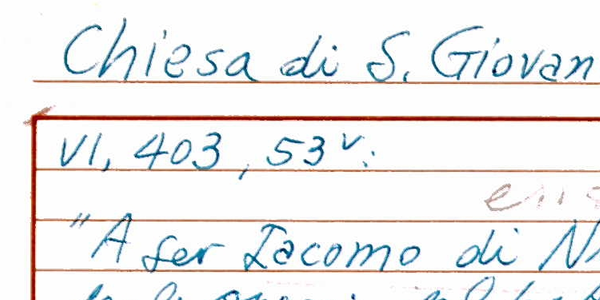 Chiesa di S. Giovan
VI, 403, 53v:
"A ser Iacomo di